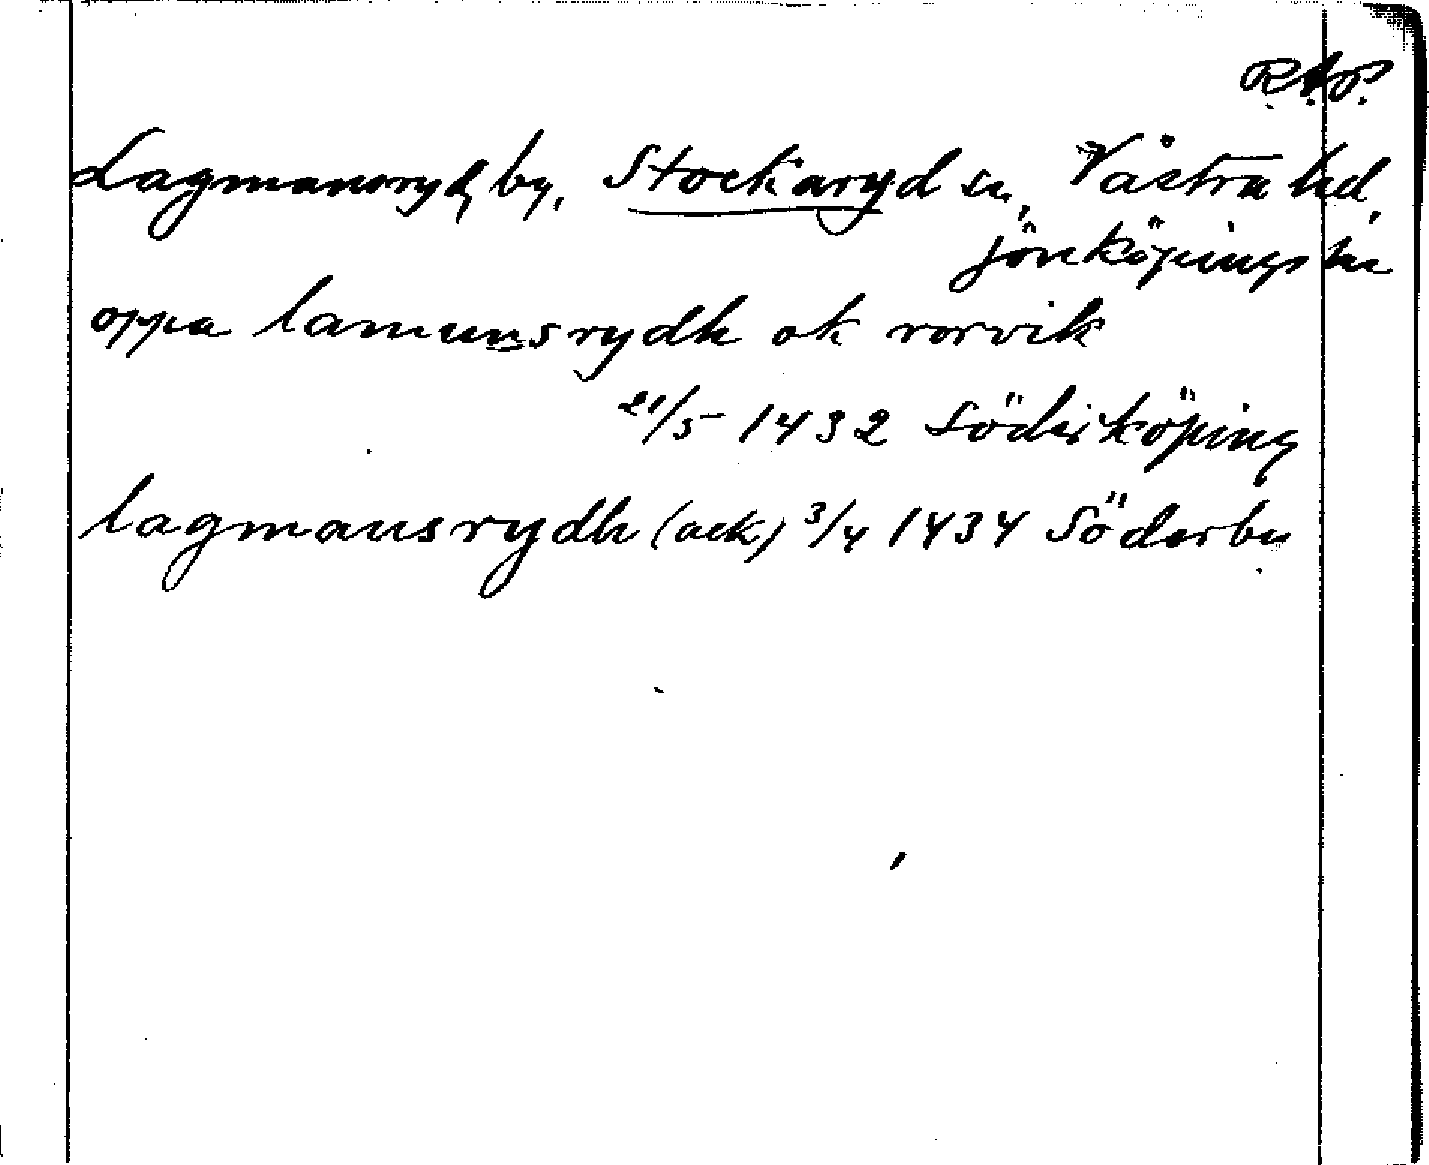 R.A.P.
Lagmansryd, by, Stockaryd sn, Västra hd,
Jönköpings län
oppa lamunsrydh ok rorvik
21/5 1432 Söderköping
lagmansrydh (ack) 3/4 1434 Söderby